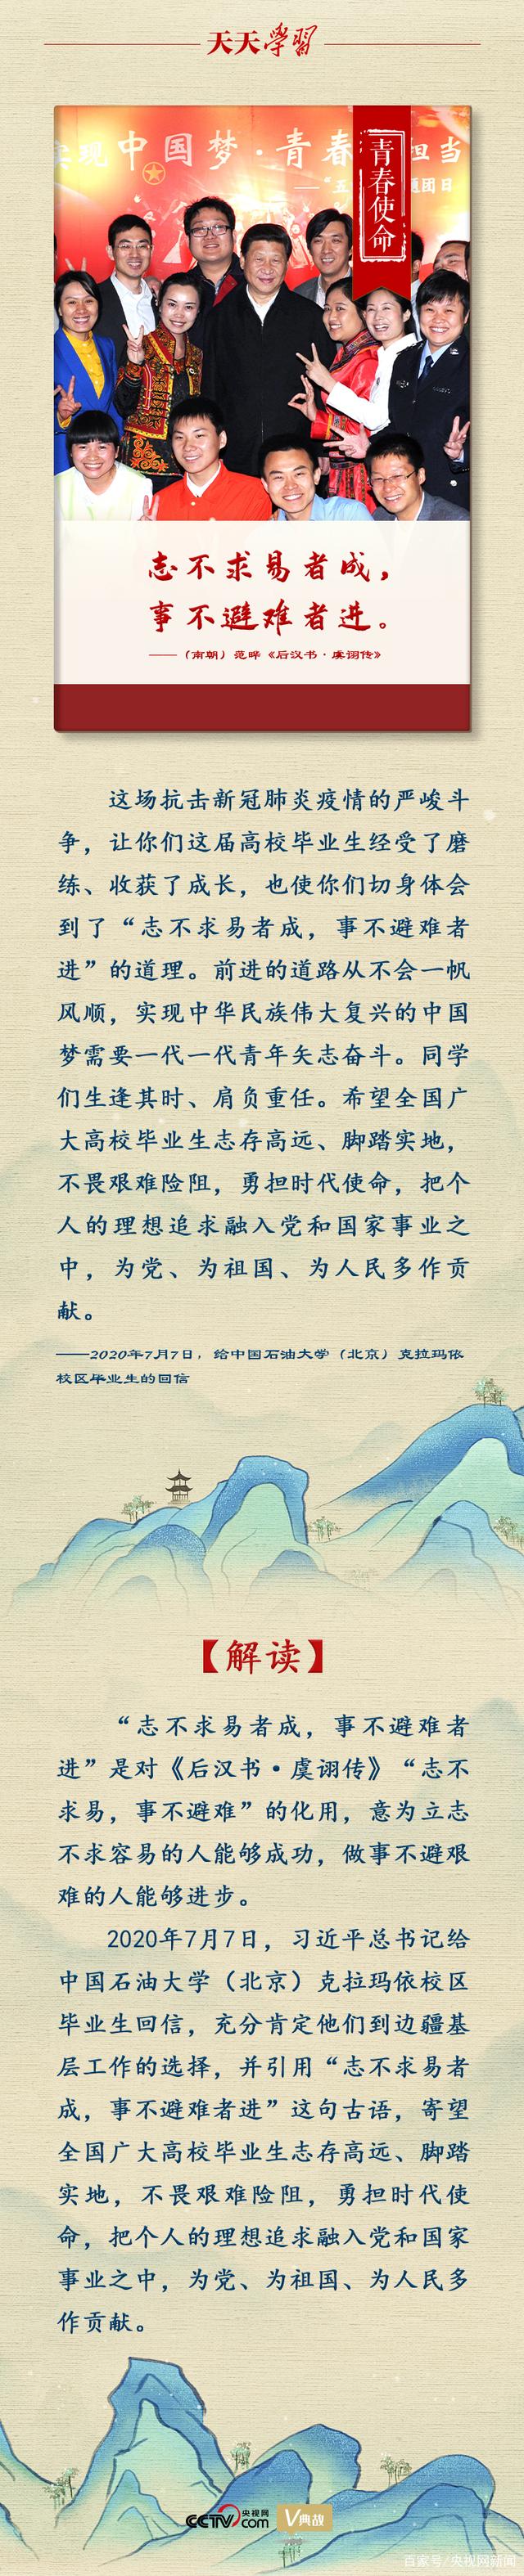 天天學習
实现中国梦·青春
担当
——“五
题团日
青春使命
志不求易者成，
事不避难者进。
——（南朝）范晔《后汉书·虞诩传》
这场抗击新冠肺炎疫情的严峻斗
争，让你们这届高校毕业生经受了磨
练、收获了成长，也使你们切身体会
到了“志不求易者成，事不避难者
进”的道理。前进的道路从不会一帆
风顺，实现中华民族伟大复兴的中国
梦需要一代一代青年矢志奋斗。同学
们生逢其时、肩负重任。希望全国广
大高校毕业生志存高远、脚踏实地，
不畏艰难险阻，勇担时代使命，把个
人的理想追求融入党和国家事业之
中，为党、为祖国、为人民多作贡
献。
——2020年7月7日，给中国石油大学（北京）克拉玛依
校区毕业生的回信
【解读】
“志不求易者成，事不避难者
进”是对《后汉书·虞诩传》“志不
求易，事不避难”的化用，意为立志
不求容易的人能够成功，做事不避艰
难的人能够进步。
2020年7月7日，习近平总书记给
中国石油大学（北京）克拉玛依校区
毕业生回信，充分肯定他们到边疆基
层工作的选择，并引用“志不求易者
成，事不避难者进”这句古语，寄望
全国广大高校毕业生志存高远、脚踏
实地，不畏艰难险阻，勇担时代使
命，把个人的理想追求融入党和国家
事业之中，为党、为祖国、为人民多
作贡献。
CCTV.com 央视网 V典故
百家号/央视网新闻